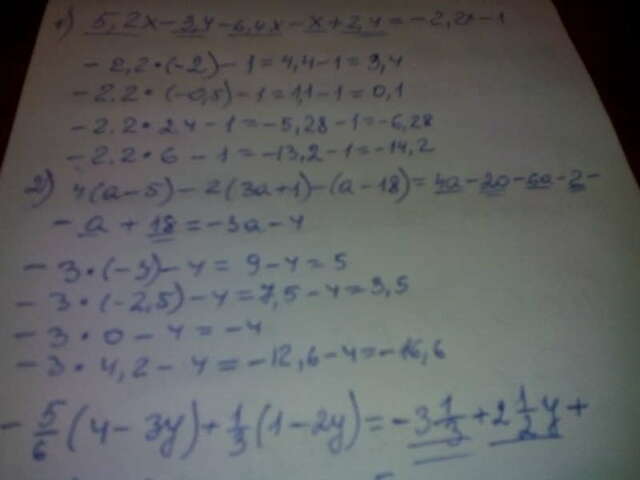 1) 5,2x-3,4-6,4x-x+2,4=-2,2x-1
-2,2·(-2)-1=4,4-1=3,4
-2,2·(-0,5)-1=1,1-1=0,1
-2,2·2,4-1=-5,28-1=-6,28
-2,2·6-1=-13,2-1=-14,2
2) 4(a-5)-2(3a+1)-(a-18)=4a-20-6a-2-
-a+18=-3a-4
-3·(-3)-4=9-4=5
-3·(-2,5)-4=7,5-4=3,5
-3·0-4=-4
-3·4,2-4=-12,6-4=-16,6
-5/6(4-3y)+1/3(1-2y)=-3 1/3+2 1/2y+